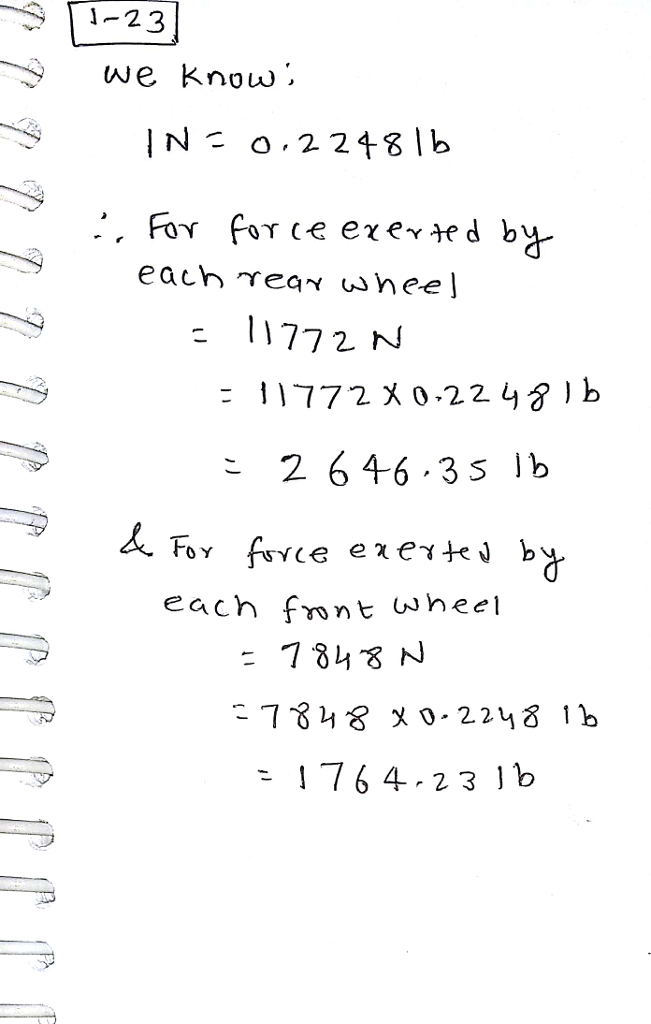 1-23
we know:
1N = 0.2248 lb
∴ For force exerted by
each rear wheel
= 11772 N
= 11772 X 0.2248 lb
= 2646.35 lb
& For force exerted by
each front wheel
= 7848 N
= 7848 X 0.2248 lb
= 1764.23 lb